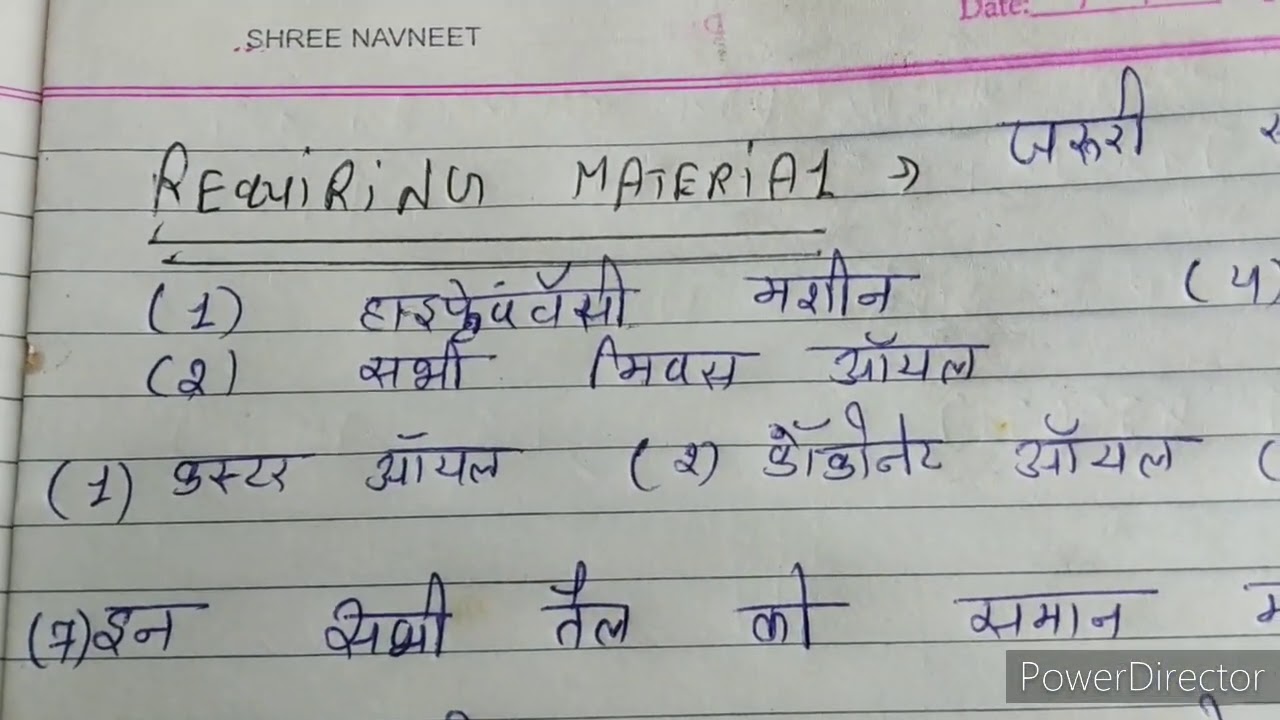 SHREE NAVNEET Date:
REQUIRING MATERIAL → जरूरी
(1) हाइफ्रेक्वेंसी मशीन (५)
(२) सभी मिक्स ऑयल
(1) कस्टर ऑयल (२) कॉकोनेट ऑयल (
(7) इन सभी तैल को समान
PowerDirector